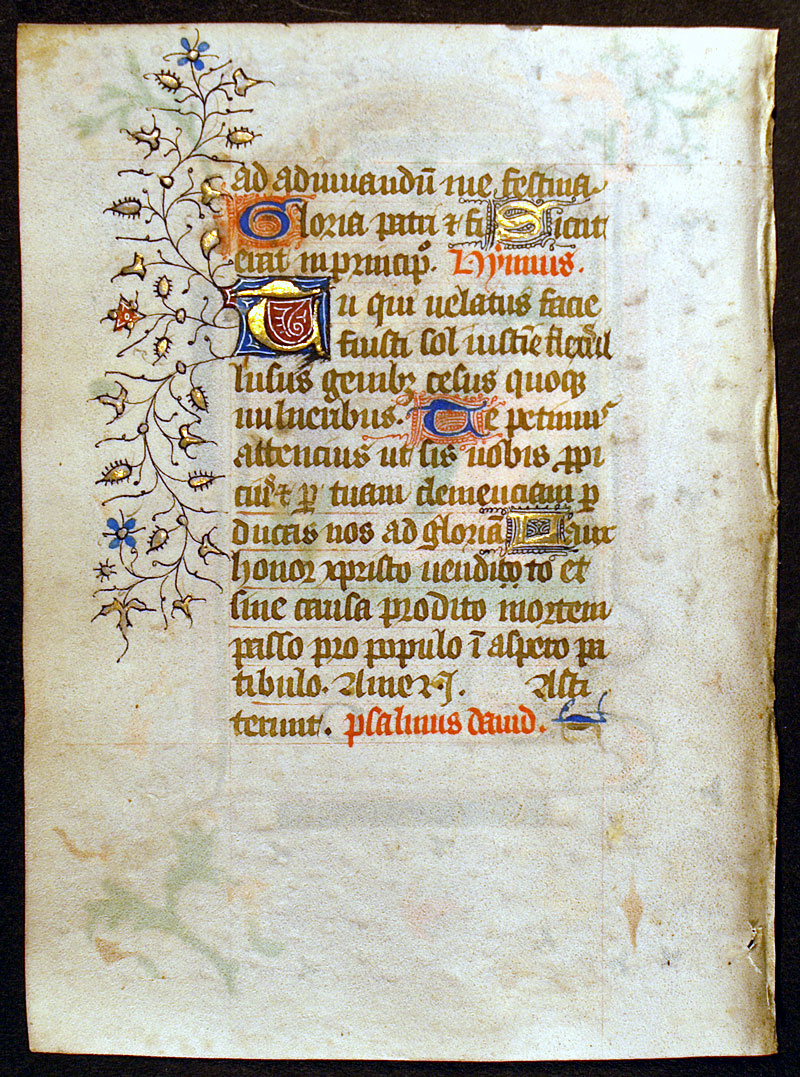 ad adiuuandū me festina
Gloria patri ⁊ fi Sicut
erat in principͦ. Hymnus.
Tu qui uelatus facie
fuisti sol iusticͥe flexis il
lusus genibꝫ cesus quoqꝫ
uulneribus. Te petimus
attencius ut sis nobis ꝓpi
ciꝰ ⁊ ꝑ tuam clemenciam ꝑ
ducas nos ad gloriā Laux
honor xpristo uendito to et
sine causa prodito mortem
passo pro populo ī aspero pa
tibulo. Amen. Asti
terunt. psalmus dauid.